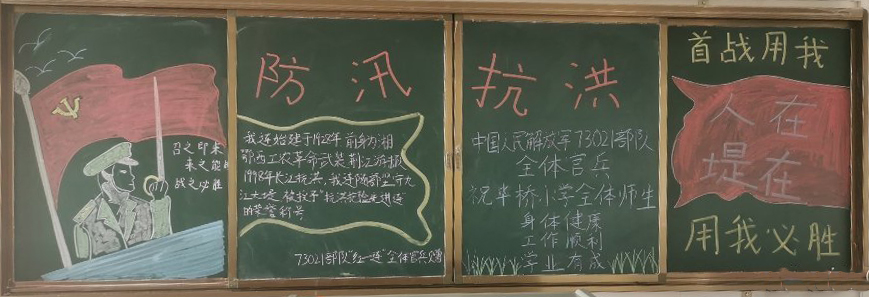 召之即来
来之能战
战之必胜
防汛
我连始建于1928年 前身为湘
鄂西工农革命武装荆江游击队
1998年长江抗洪,我连随部坚守九
江大堤 被授予"抗洪抢险先进连
的荣誉称号
73021部队"红一连"全体官兵赠
抗洪
中国人民解放军73021部队
全体官兵
祝华桥小学全体师生
身体健康
工作顺利
学业有成
首战用我
人在
堤在
用我必胜